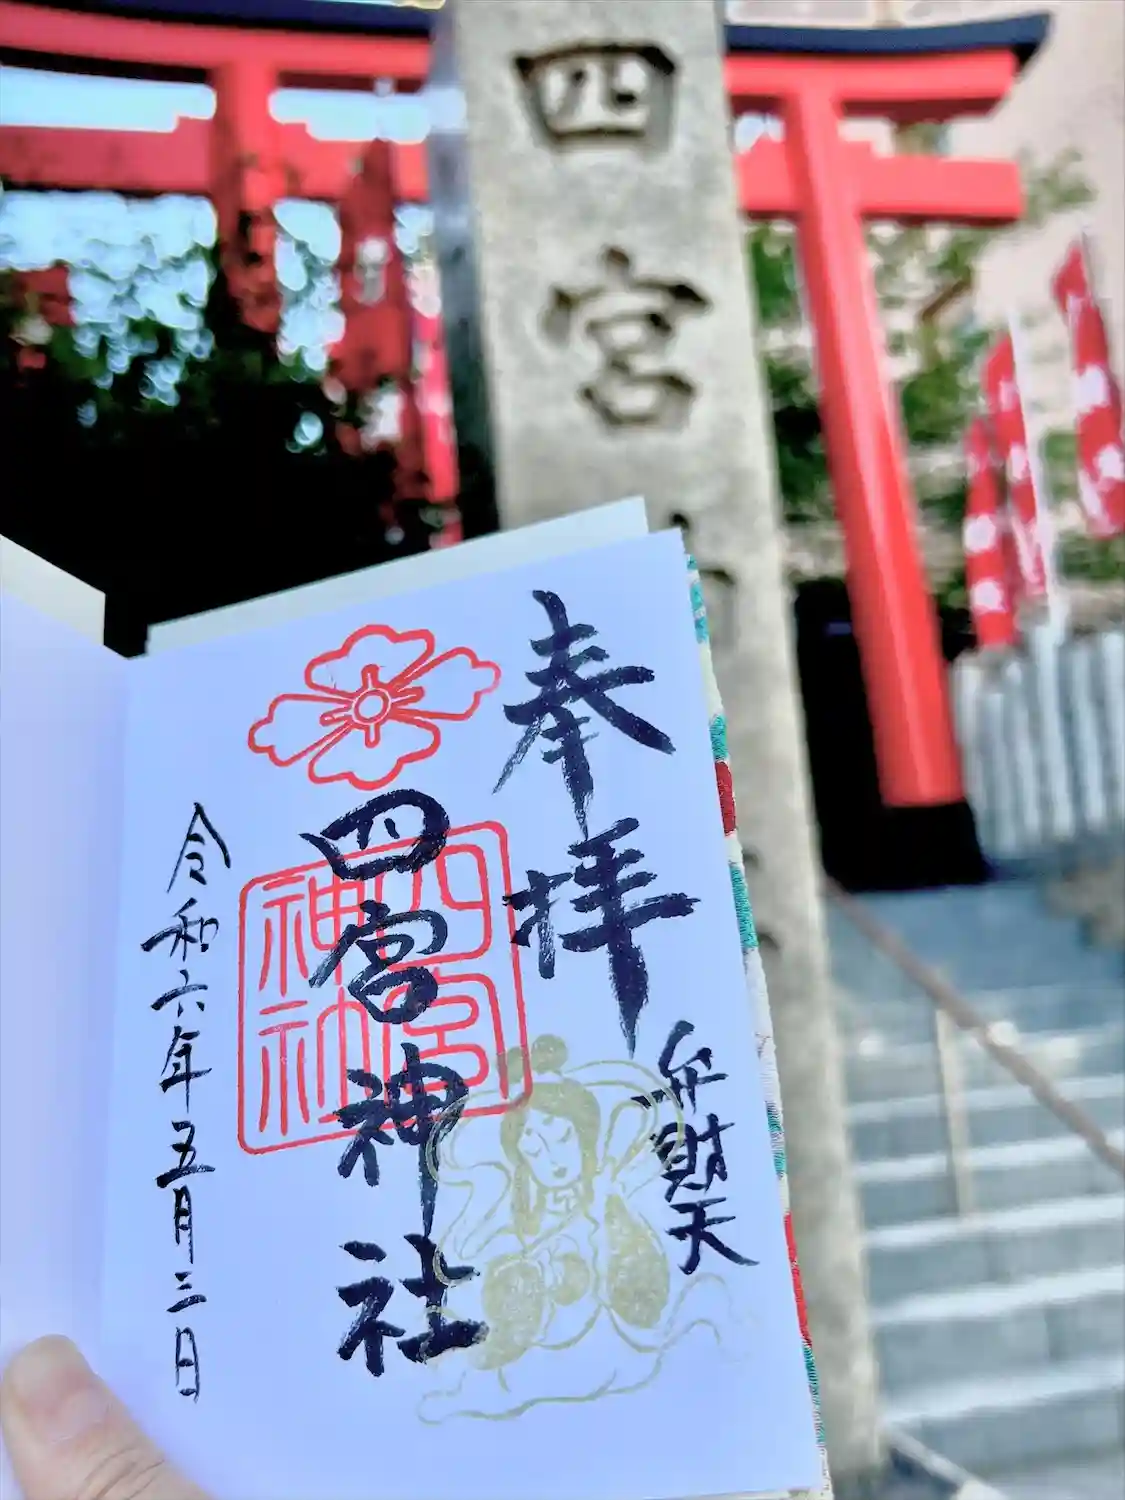 四宮
奉拝
弁財天
四宮神社
四宮
神社
令和六年五月三日